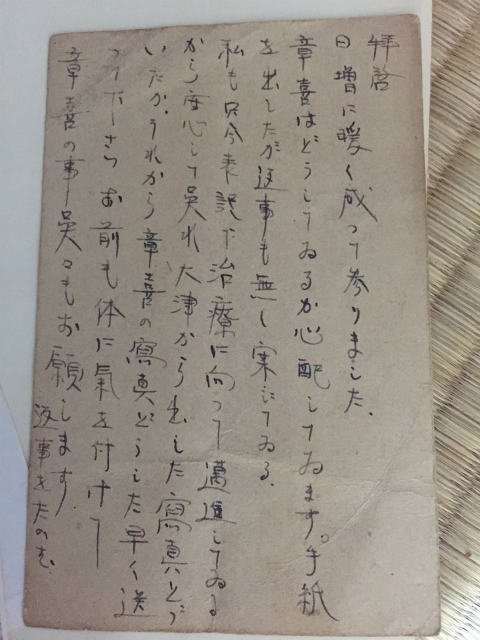 拝啓
日増に暖く成って参りました、
章喜はどうしてゐるか心配してゐます。手紙
を出したが返事も無く案じてゐる、
私も只今表記下治療に向って邁進してゐる
から安心して呉れ大津から出した寫真とゞ
いたか、それから章喜の寫真どうした早く送
って下さい お前も体に氣を付けて
章喜の事呉々もお願します、
返事をたのむ、